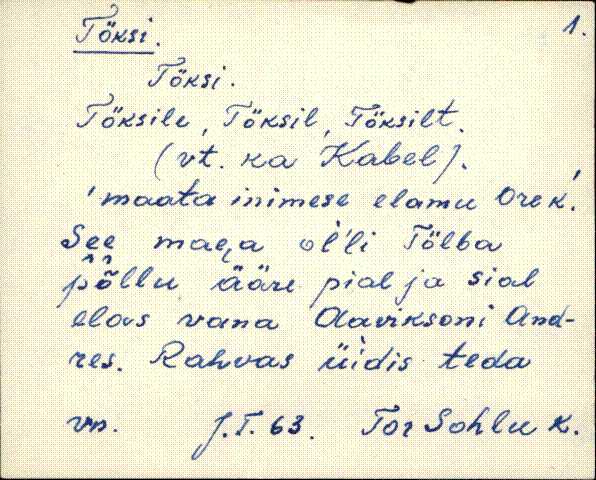 Töksi. 1.
Töksi.
Töksile, Töksil, Töksilt.
(vt. ka Kabel).
'maata inimese elamu Orek.'
See maea ol'li Tölba
põllu ääre pial ja sial
elas vana Aaviksoni And-
res. Rahvas üìdis teda
vn. J.T. 63. Tor Sohlu k.